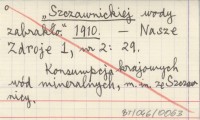 „Szczawnickiej wody
zabrakło". 1910. — Nasze
Zdroje 1, nr 2: 29.
Konsumpcja krajowych
wód mineralnych, m. in. ze Szczaw
nicy.